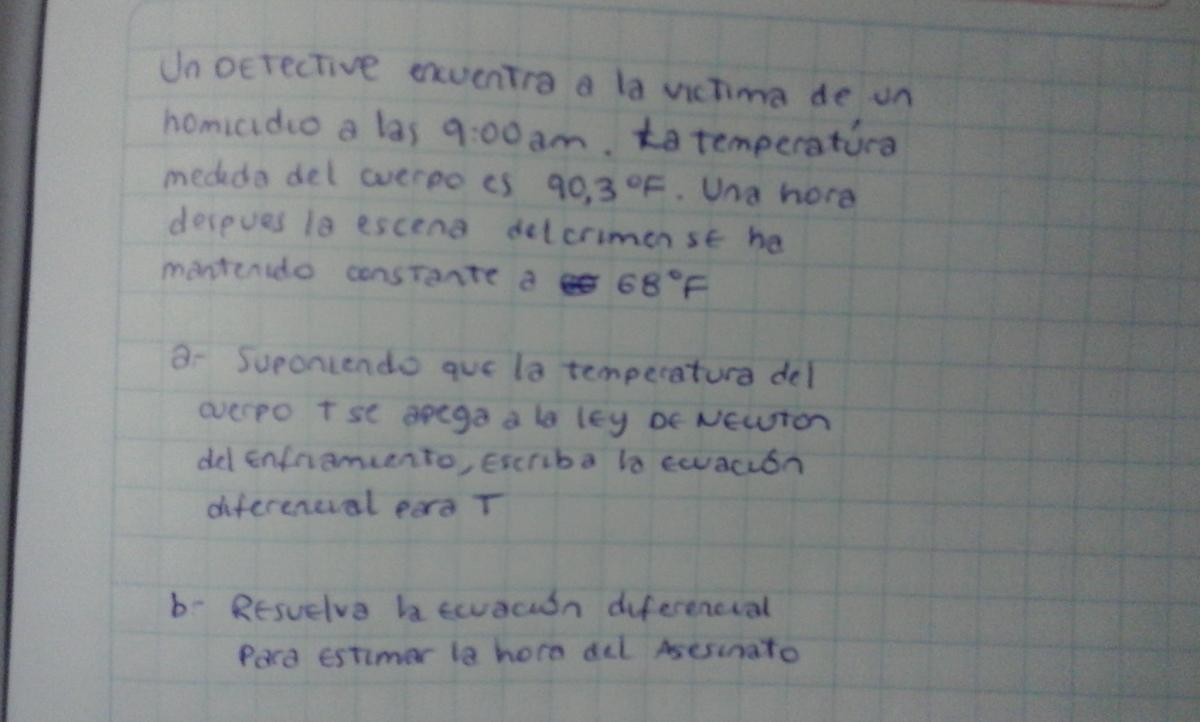 Un DETECTIVE encuentra a la victima de un
homicidio a las 9:00 am. La temperatúra
medida del cuerpo es 90,3°F. Una hora
despues la escena del crimen se ha
mantenido constante a 68°F
a- Suponiendo que la temperatura del
cuerpo T se apega a la LEY DE NEWTON
del enfriamiento, escriba la ecuación
diferencial para T
b- Resuelva la ecuación diferencial
Para estimar la hora del Asesinato